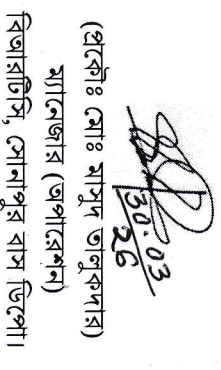 30.03
26
(প্রকৌঃ মোঃ মাসুদ তালুকদার)
ম্যানেজার (অপারেশন)
বিআরটিসি, সোনাপুর বাস ডিপো।